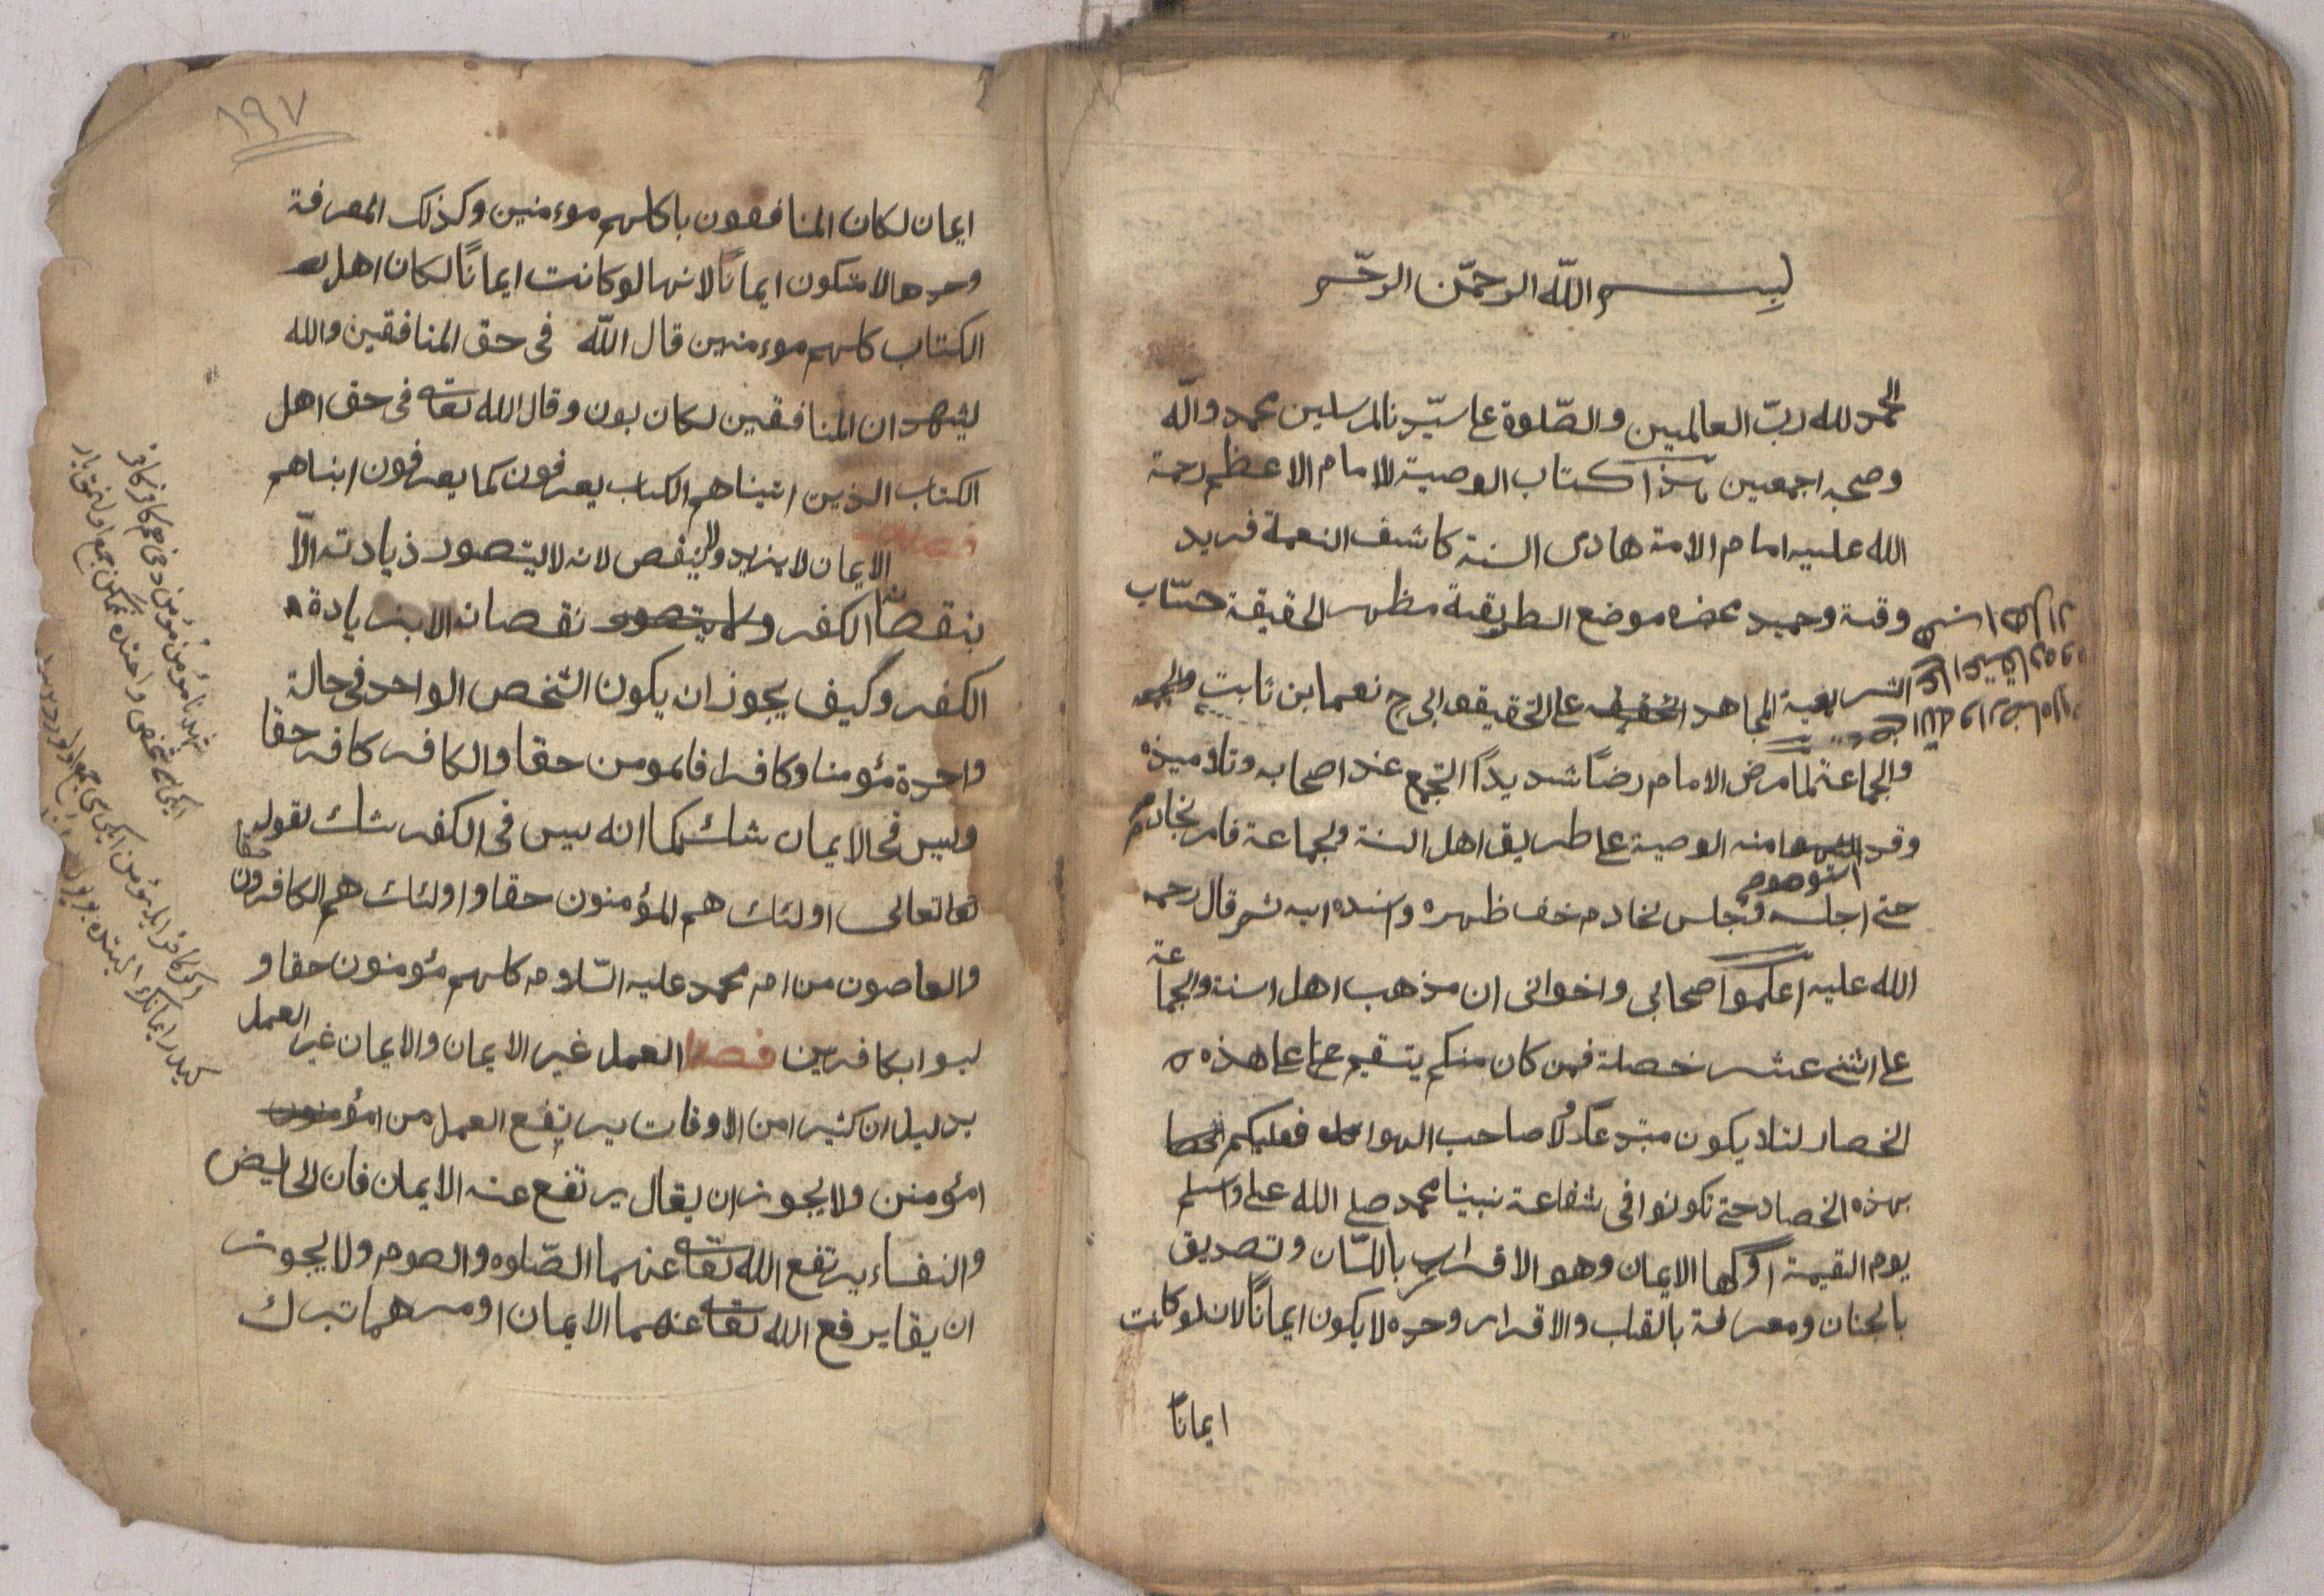 بسم اللّه الرحمّن الرحّيم
الحمد لله ربّ العالميين والصّلوة على سيّدنا المرسلين محمد وآله
وصحبه اجمعين هذا كتاب الوصية للامام الاعظم رحمة
الله عليه امام الامة هادى السنة كاشف الغمة فريد
وقته وحيد عصره موضع الطريقة مظهر الحقيقة حسّاب
الشريعة المجاهد على التحقيقه ابى ح نعمابن ثابت
والجماعة لما مرض الامام رضاً شديداً اجتمع عند اصحابه وتلاميذه
وقد استوصوا منه الوصية على طريق اهل السنة والجماعة فامر بخادم
حتى اجلسه فجلس بخادم خف ظهره واسنده ابيه ثم قال رحمة
الله عليه اعلموا اصحابى واخوانى ان مذهب اهل اسنة والجماعة
على اثنى عشر خصلة فمن كان منكم يتقيم على هذه
الخصار لئلا يكون مبتدعا ولا صاحب الهوا فعليكم
بهذه الخصاد حتى تكونوا فى شفاعة نبينا محمد صلى الله على وسلم
يوم القيمة اولها الايمان وهو الاقرار باللسّان وتصديق
بالجنان ومعرفة بالقلب والاقرار وحده لا يكون ايماناً لانه لو كانت
ايماناً
١٩٧
ايمان لكان المنافقون باكلهم موءمنين وكذلك المعرفة
وحدها لا متكون ايماناً لانها لو كانت ايماناً لكان اهل
الكتاب كلهم موءمنين قال اللّه فى حق المنافقين والله
يشهد ان المنافقين لكان بون وقال الله تعالى فى حق اهل
الكتاب الذين اتيناهم الكتاب يعرفون كما يعرفون ابناهم
فصل الايمان لا يزيد ولا ينقص لانه لا يتصور ذيادته الّا
بنقصان الكفر ولا يتصور نقصان الا بزيادة
الكفر وكيف يجوز ان يكون الشخص الواحد فى حالة
واحدة مئومنا وكافرا فالمومن حقا والكافر كافر حقا
وليس فى الايمان شك كما انه ليس فى الكفر شك لقوله
تعالى اولئك هم المؤمنون حقا واولئك هم الكافرون حقا
والعاصون من امه محمد عليه السّلام كلهم مئومنون حقا و
ليوا بكافرين فصل العمل غير الايمان والايمان غير العمل
بدليل ان كثيرا من الاوقات يرتفع العمل من امؤمنون
امؤمنن ولا يجوز ان يقال يرتفع عنه الايمان فان الحايض
والنفساء يرتفع الله تعا عنهما الصّلوه والصوم ولا يجوز
ان يقا يرفع الله تعا عنهما الايمان اومرهما بترك